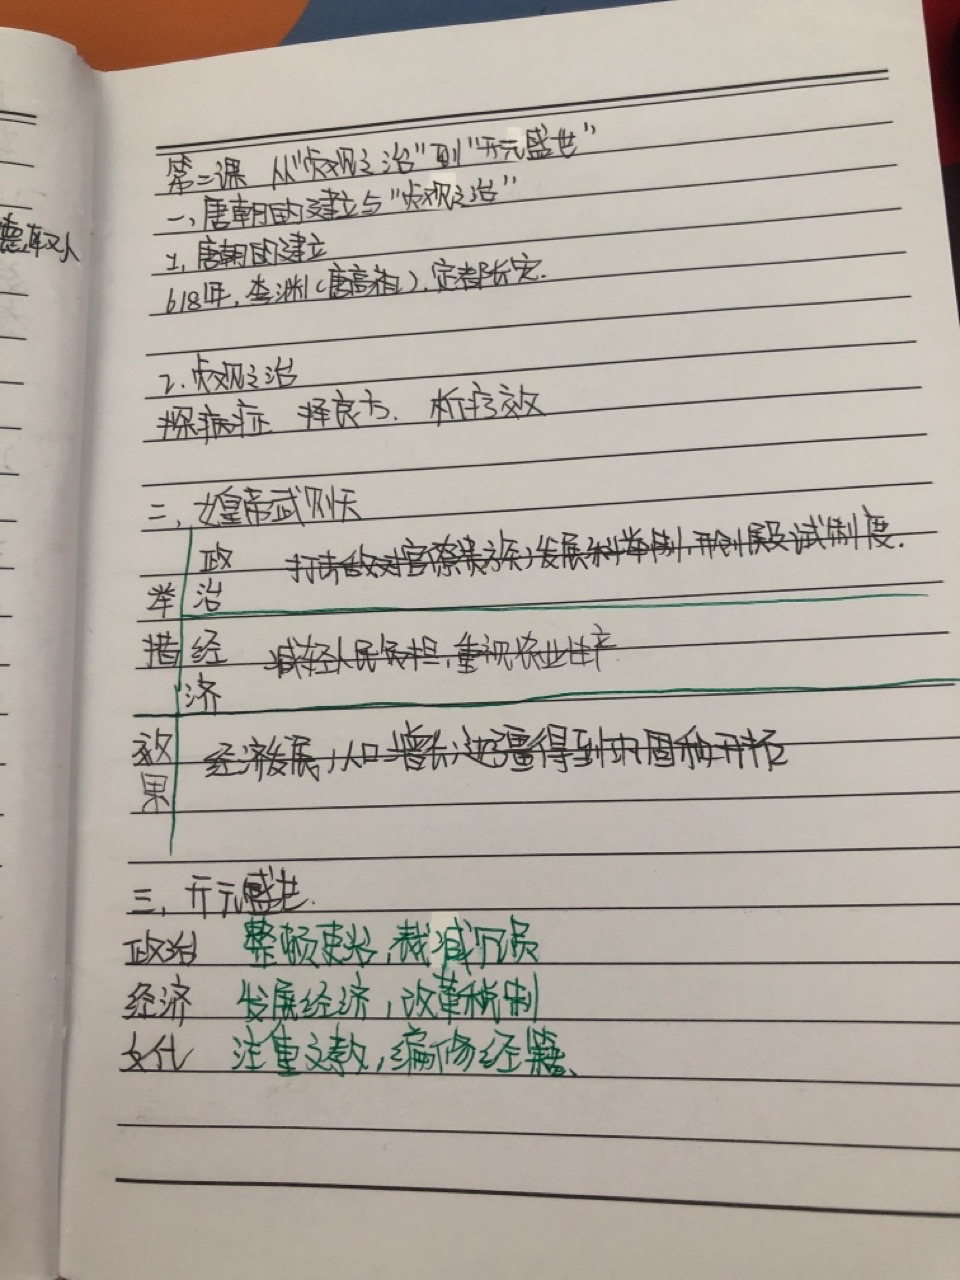 第二课 从“贞观之治”到“开元盛世”
一、唐朝的建立与“贞观之治”
1、唐朝的建立
618年，李渊（唐高祖），定都长安.
2.贞观之治
探病症 择良方、 析疗效
二、女皇帝武则天
举措 政治 打击敌对官僚贵族，发展科举制，开创殿试制度.
经济 减轻人民负担，重视农业生产
效果 经济发展，人口增长，边疆得到巩固和开拓
三、开元盛世.
政治 整顿吏治，裁减冗员
经济 发展经济，改革税制
文化 注重文教，编修经籍、